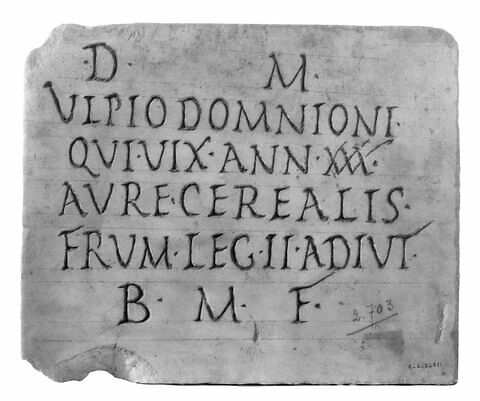 ·D· M·
VLPIO DOMNIONI·
QVI·VIX·ANN·XXX·
AVRE·CEREALIS·
FRVM·LEG·II·ADIVT·
B· M· F·
2.703